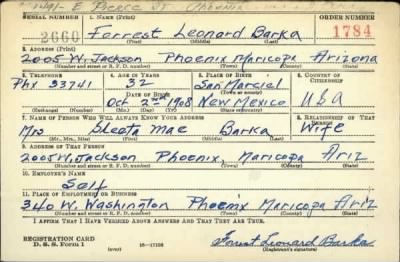 1241 - E Pierce St Phoenix
SERIAL NUMBER 1. NAME (Print) ORDER NUMBER
2660 Forrest Leonard Barka 1784
(First) (Middle) (Last)
2. ADDRESS (Print)
2005 W. Jackson Phoenix Maricopa Arizona
(Number and street or R. F. D. number) (Town) (County) (State)
3. TELEPHONE 4. AGE IN YEARS 5. PLACE OF BIRTH 6. COUNTRY OF CITIZENSHIP
Phx 33741 32 San Marcial
DATE OF BIRTH (Town or county)
Oct 2nd 1908 New Mexico USA
(Exchange) (Number) (Mo.) (Day) (Yr.) (State or country)
7. NAME OF PERSON WHO WILL ALWAYS KNOW YOUR ADDRESS 8. RELATIONSHIP OF THAT PERSON
Mrs Sleeta Mae Barka Wife
(Mr., Mrs., Miss) (First) (Middle) (Last)
9. ADDRESS OF THAT PERSON
2005 W. Jackson Phoenix, Maricopa Ariz
(Number and street or R. F. D. number) (Town) (County) (State)
10. EMPLOYER'S NAME
Self
11. PLACE OF EMPLOYMENT OR BUSINESS
340 W. Washington Phoenix Maricopa Ariz
(Number and street or R. F. D. number) (Town) (County) (State)
I AFFIRM THAT I HAVE VERIFIED ABOVE ANSWERS AND THAT THEY ARE TRUE.
REGISTRATION CARD
D. S. S. Form 1 (over) 16-17105 Forrest Leonard Barka
(Registrant's signature)